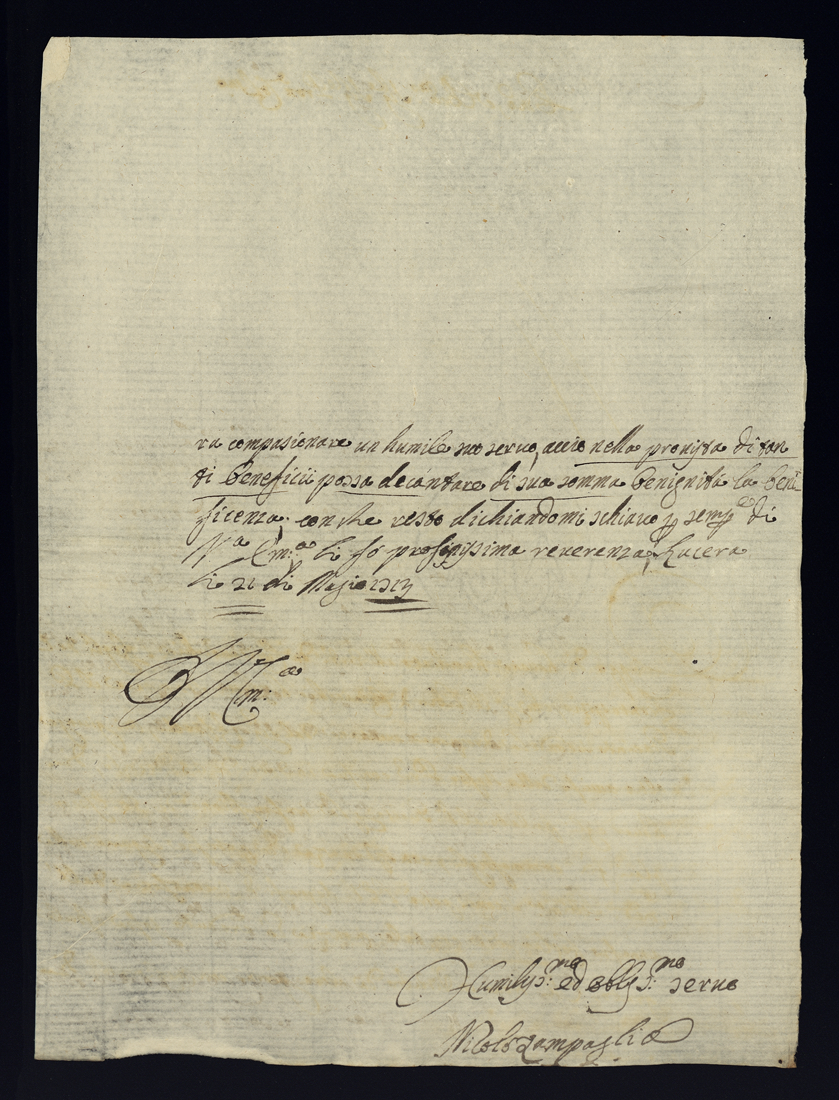 ra compasionare un humile suo seruo, accio nella prouista di tan
ti beneficii possa decantare di sua somma benignità la bene
ficenza; con che resto dichiandomi schiauo p semp di
V.ª Em.ª Li fò profinissima reuerenza, Lucera
li 26 di Magio 1713
Em.:
Humilis:mo ed oblig:mo seruo
Nicolò Zampaglia